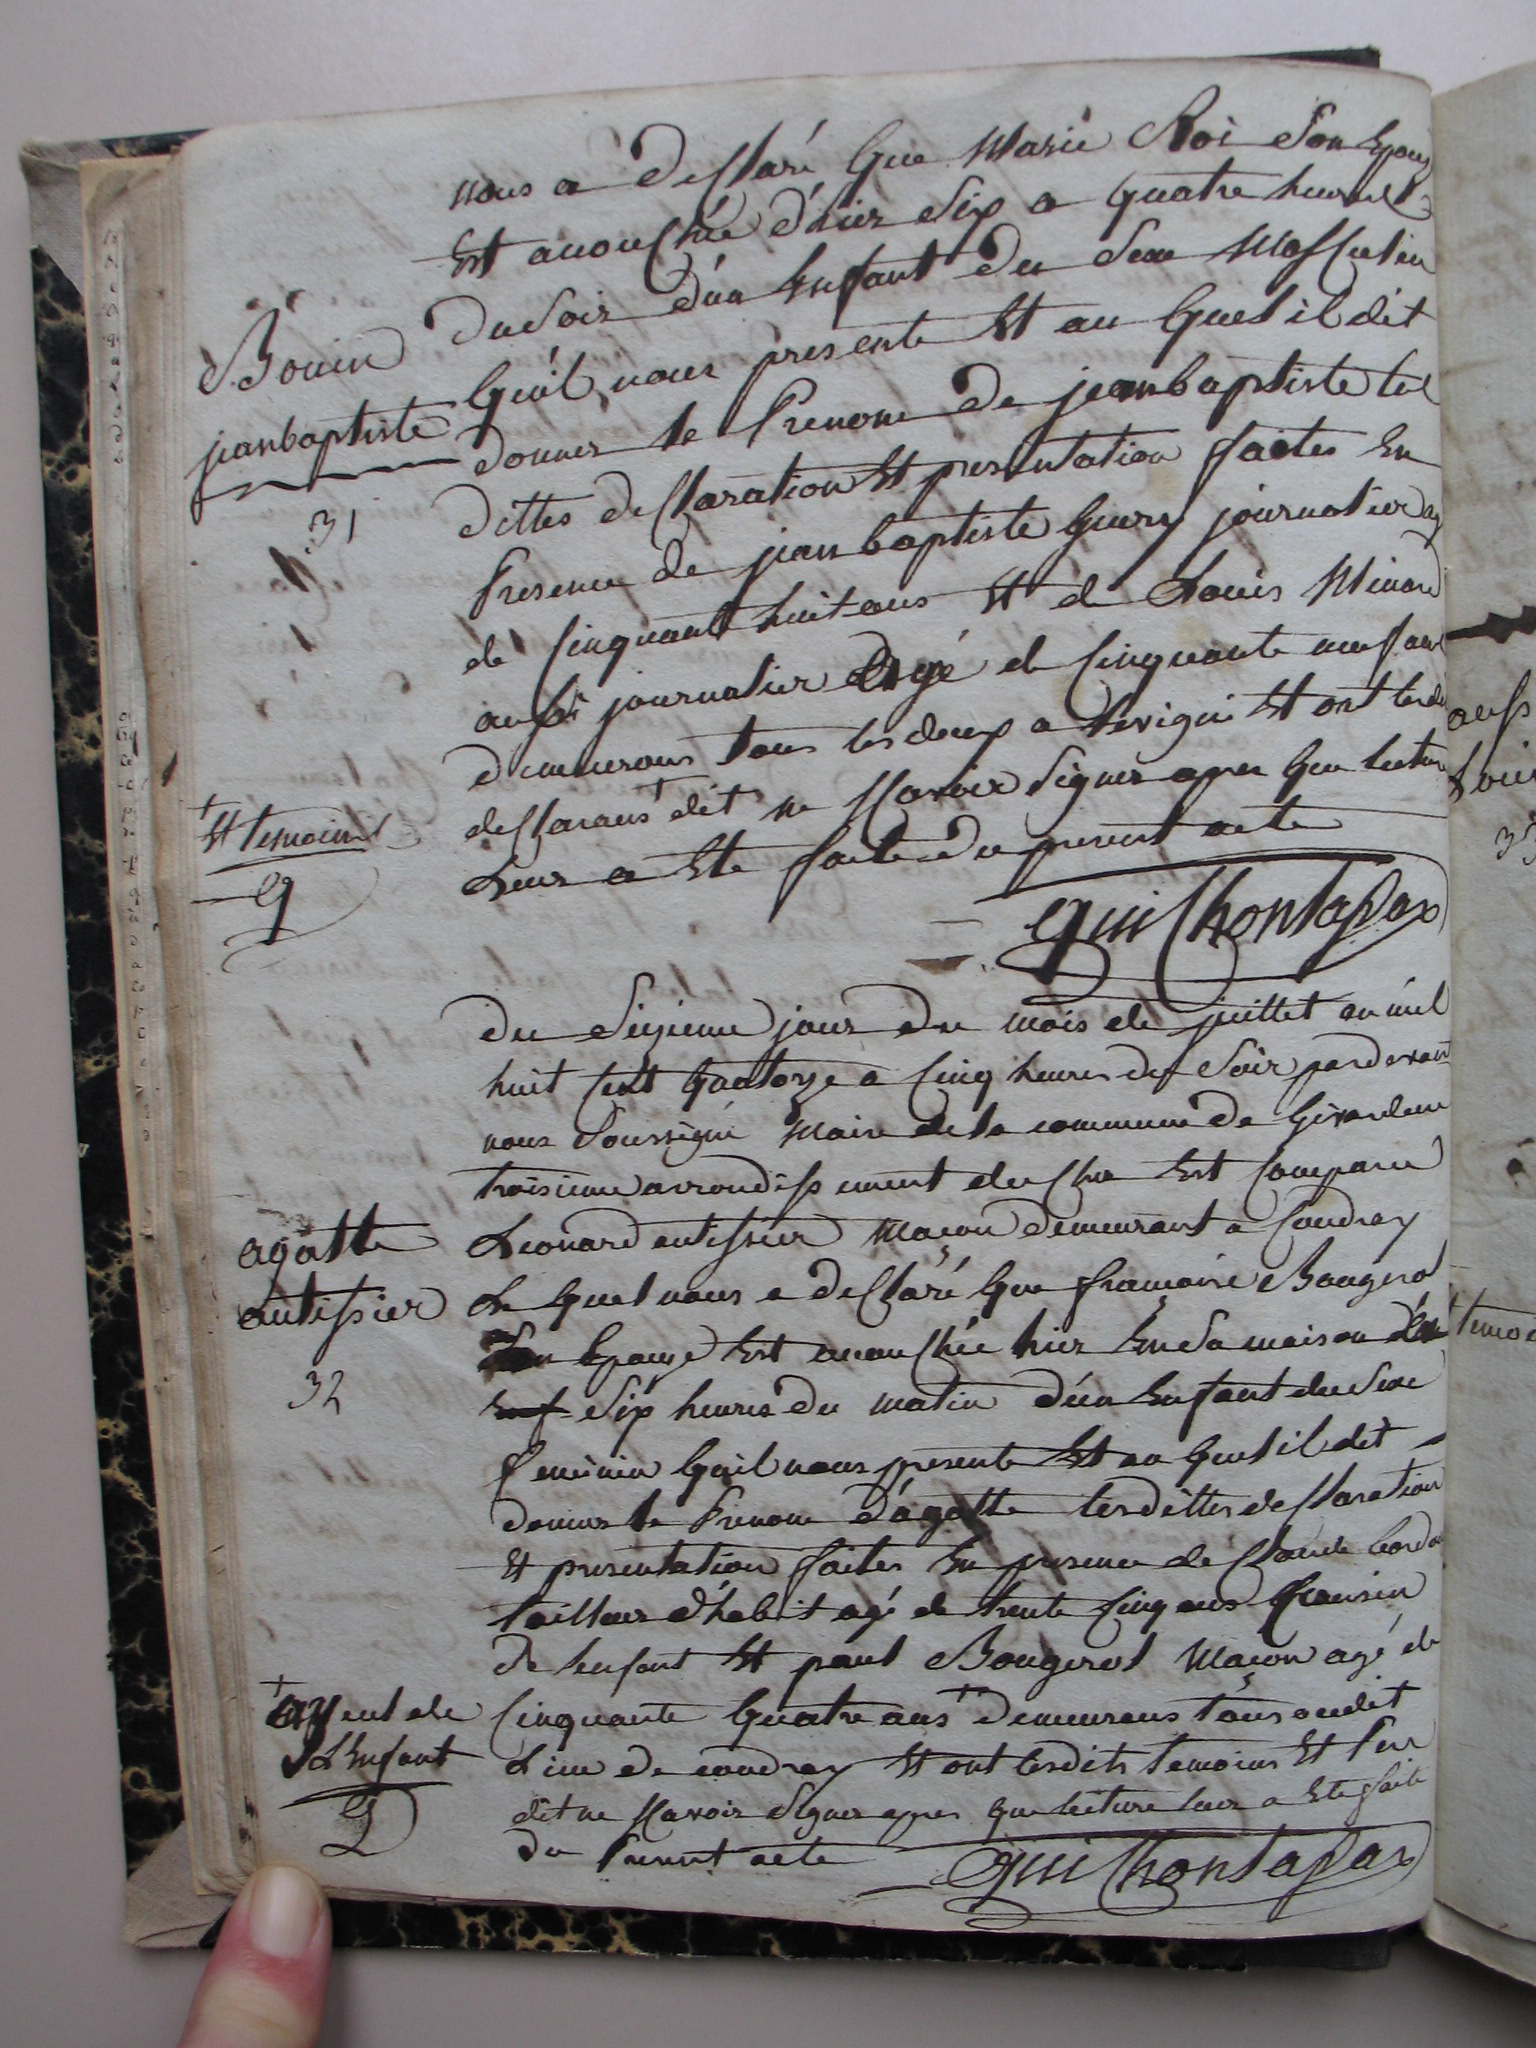 nous a desclaré que Marie Roi Son Epouse
Est acouchée d'hier Six a quatre heures
du Soir d'un Enfant du Sexe Masculin
Bouin
jeanbaptiste
31
qu'il nous presente Et au quel il dit
donner le Prenom de jeanbaptiste les
dittes desclaration Et presentation faites En
Presence de jean baptiste query journalier agé
de Cinquante huit ans Et de Louis Minard
aussi journalier agé de Cinquante neuf ans
demeurans tous les deux a Sevigni Et ont lesdi
desclarans dit ne sçavoir Signer apres que lecture
Et temoins
Leur a Ete faite du present acte
Guichontapax
du Sizieme jour du mois de juillet an mil
huit Cent quatorze a Cinq heures du Soir pardevant
nous Soussigné Maire de la commune de
troisieme arrondissement du Cher Est Comparu
agatte
autissier
32
Leonard autissier Maçon demeurant a Coudray
Le quel nous a desclaré que françoise Bougerol
Son Epouse Est acouchée hier En Sa maison
Six heures du matin d'un Enfant du Sexe
feminin qu'il nous presente Et au quel il dit
donner le Prenom d'agatte lesdittes desclaration
Et presentation faites En presence de Claude
tailleur d'habit agé de trente Cinq ans
de lenfant Et paul Bougerol Maçon agé de
ayeul de
L'Enfant
Cinquante quatre ans demeurans tous audit
Lieu de coudray Et ont lesdits temoins Et Pere
dit ne sçavoir Signer apres que lecture leur a Ete faite
du Present acte
Guichontapax